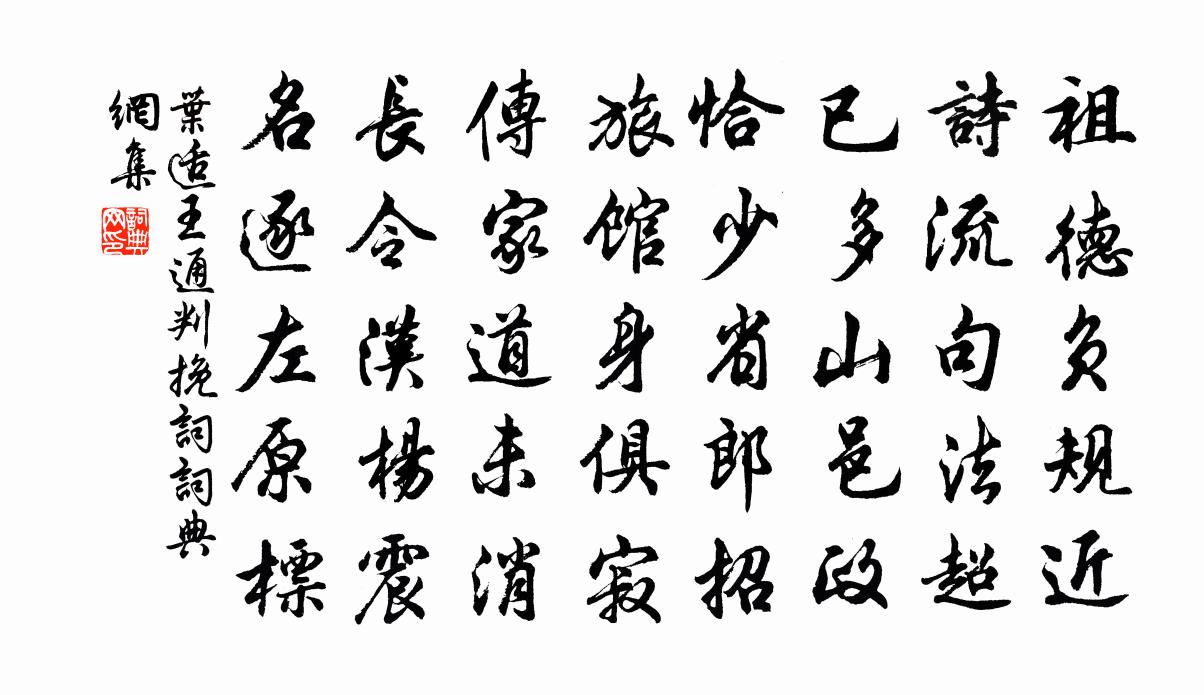 祖德負規近
詩流句法超
已多山邑政
恰少省郎招
旅館身俱寂
傳家道未消
長令漢楊震
名逐左原標
葉适王通判挽詞詞典
網集
詞典
网印